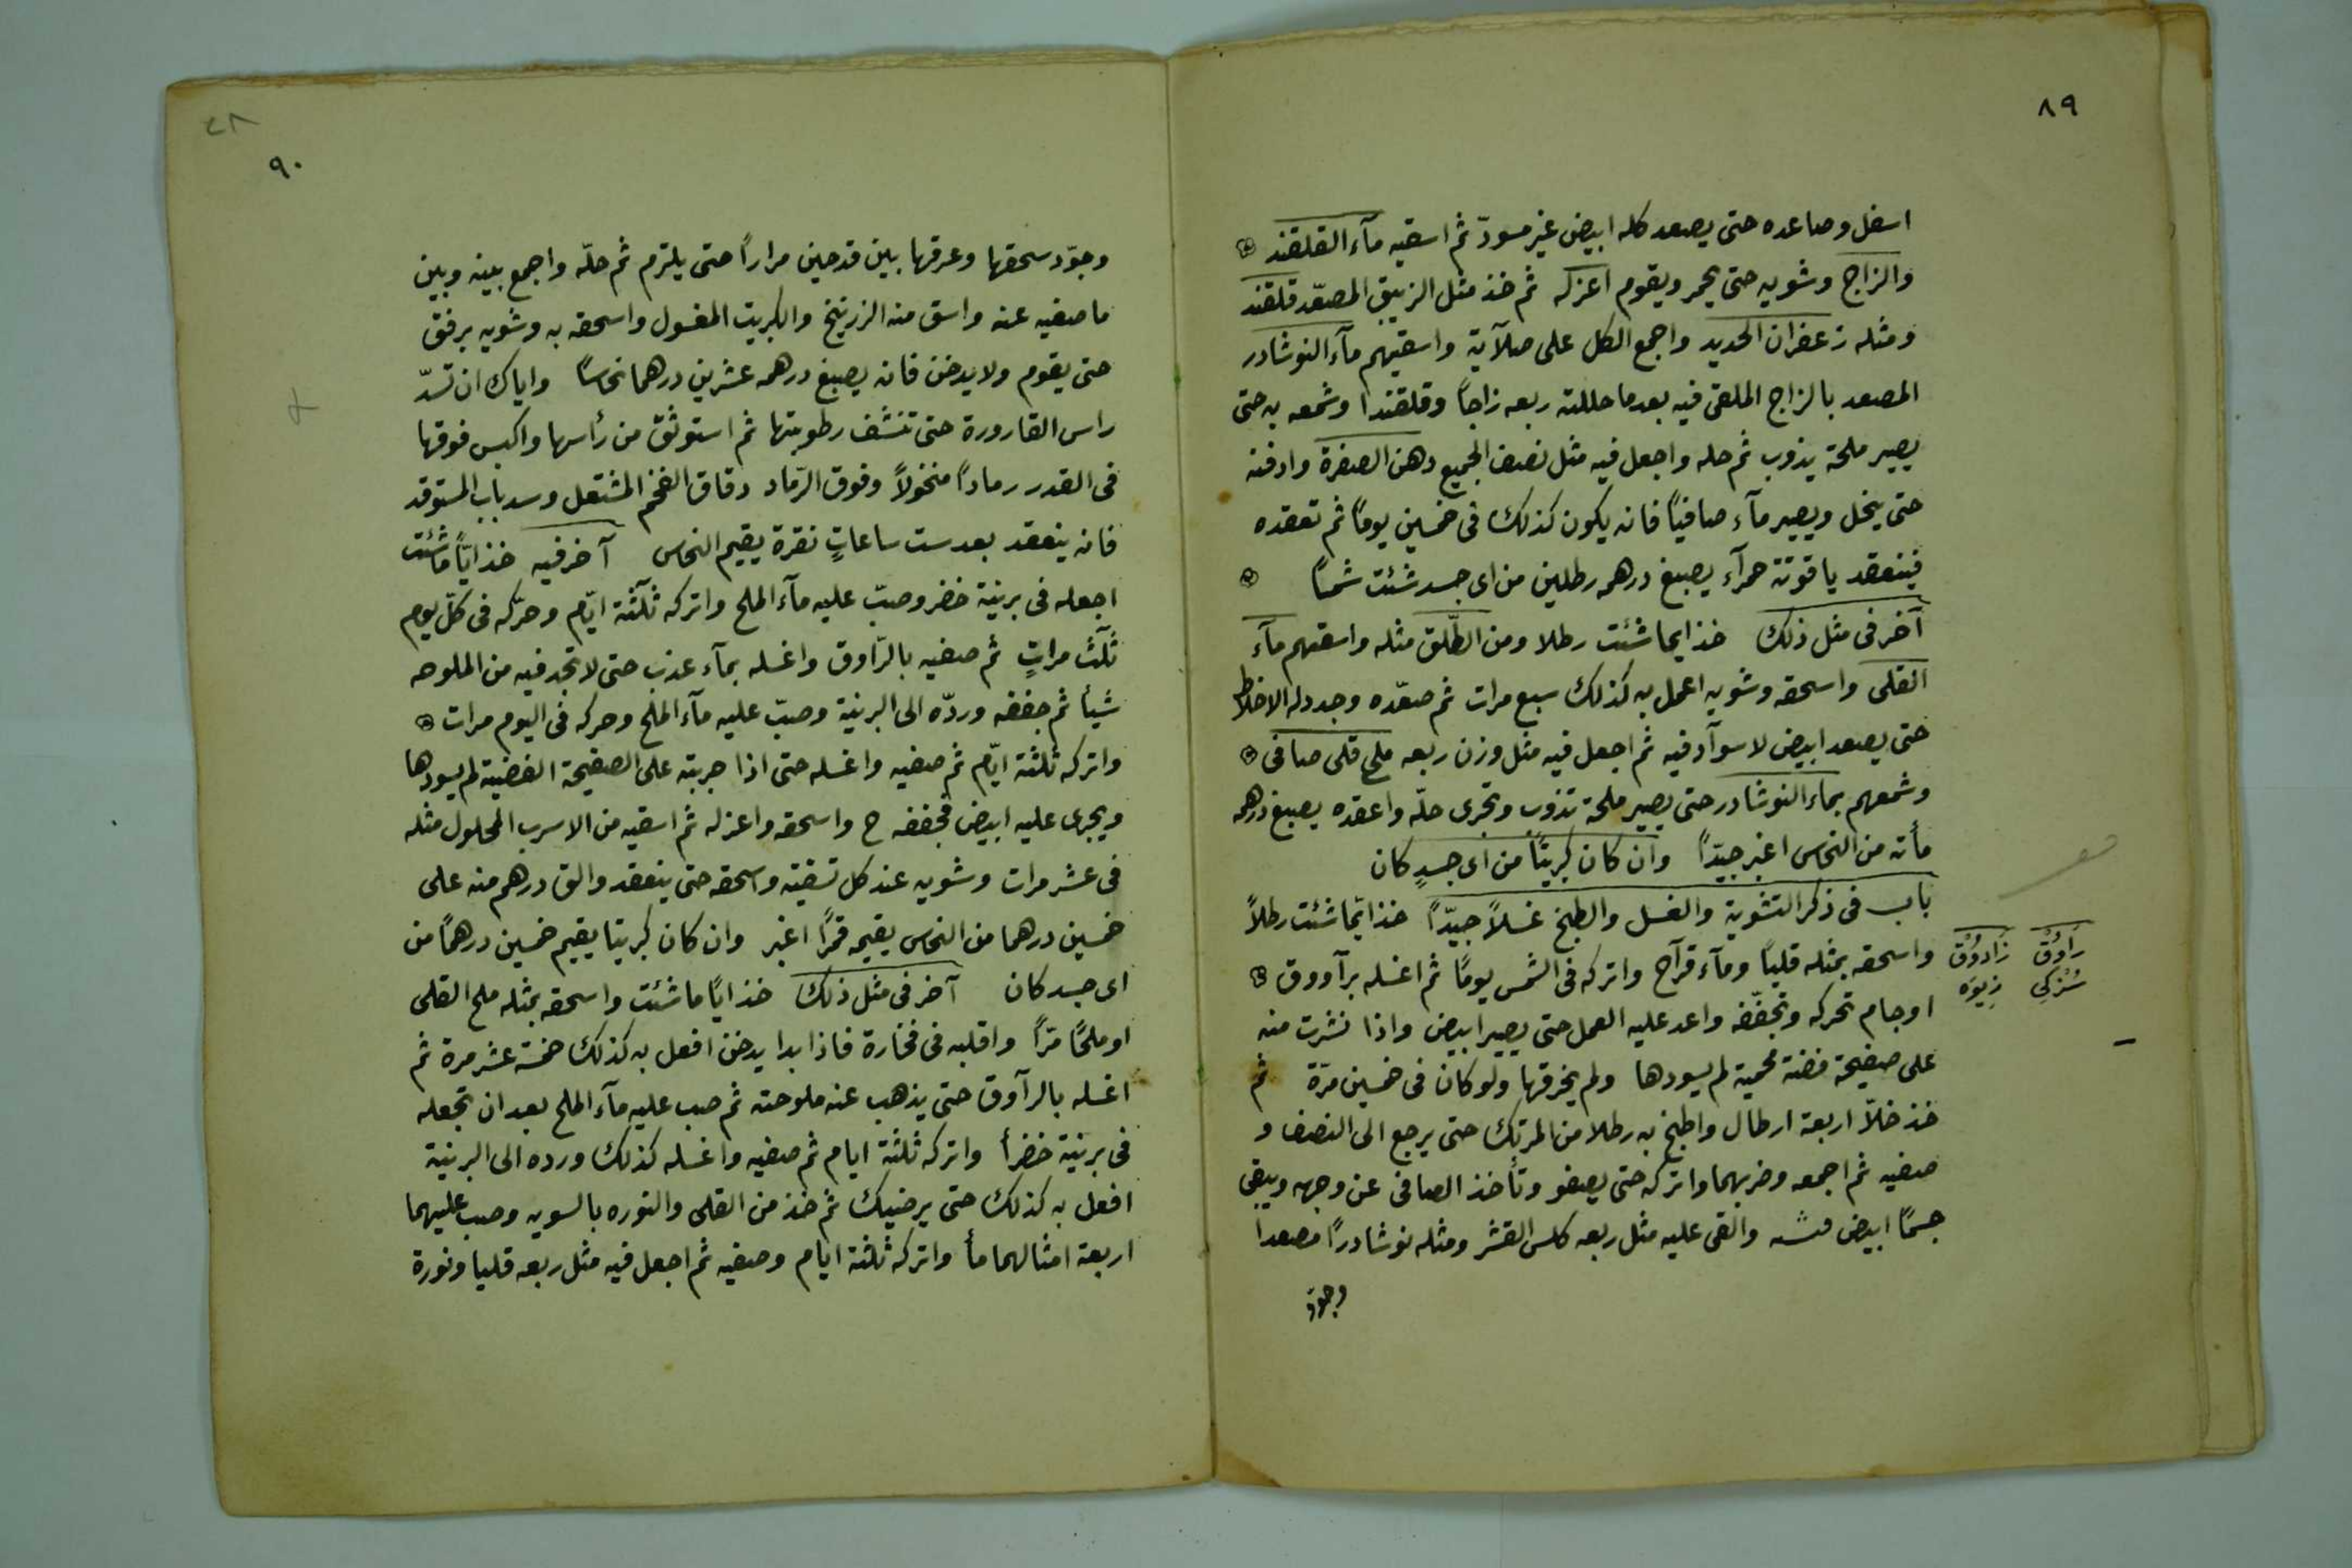 ٨٩
اسفل وصاعده حتى يصعد كله ابيض غير مسودّ ثم اسقيه مآء القلقند
والزاج وشويه حتى يحمر ويقوم اعزله ثم خذ مثل الزيبق المصعّد قلقند
ومثله زعفران الحديد واجمع الكل على صلآية واسقيهم مآء النوشادر
المصعد بالزاج الملقى فيه بعد ما حللته ربعه زاجاً وقلقندا وشمعه به حتى
يصير ملحة يذوب ثم حله واجعل فيه مثل نصف الجميع دهن الصفرة وادفنه
حتى ينحل ويصير مآء صافياً فانه يكون كذلك فى خمسين يوماً ثم تعقده
فينعقد ياقوتة حمرآء يصبغ درهمه رطلين من اى جسد شئت شمساً
آخر فى مثل ذلك خذ ايما شئت رطلا ومن الطّلق مثله واسقهم مآء
القلى واسحقه وشويه اعمل به كذلك سبع مرات ثم صعّده وجدد له الاخلاط
حتى يصعد ابيض لا سوآد فيه ثم اجعل فيه مثل وزن ربعه ملح قلى صافى
وشمعهم بماء النوشادر حتى يصير ملحة تذوب وتجرى حلّه واعقده يصبغ درهمه
مأته من النحاس اغبر جيّداً وان كان كبريتاً من اى جسدٍ كان
باب فى ذكر التشوية والغسل والطبخ غسلاً جيّداً خذ ايّما شئت رطلاً
واسحقه بمثله قلياً ومآء قرآح واتركه فى الشمس يوماً ثم اغسله برآووق
اوجام تحركه وتجفّفه واعد عليه العمل حتى يصير ابيض واذا نشرت منه
على صفيحة فضة محمية لم يسودها ولم يخرقها ولو كان فى خمسين مرّة ثم
خذ خلاّ اربعة ارطال واطبخ به رطلا من المرتك حتى يرجع الى النصف و
صفيه ثم اجمعه وضربهما واتركه حتى يصفو وتأخذ الصافى عن وجهه ويبقى
جسمًا ابيض والقى عليه مثل ربعه كلس القشر ومثله نوشادرًا مصعدا
وجوّد
رَاوُق زَادوُق
زِيوَه
٩٠
وجوّد سحقها وعرقها بين قدحين مراراً حتى يلتزم ثم حلّه واجمع بينه وبين
ما صفيه عنه واسق منه الزرنيخ والكبريت المغسول واسحقه به وشويه برفق
حتى يقوم ولا يدخن فانه يصبغ درهمه عشرين درهما نحاساً واياك ان تسدّ
راس القارورة حتى تنشف رطوبتها ثم استوثق من رأسها واكبس فوقها
فى القدر رماداً منخولاً وفوق الرّماد دقاق الفخم المشتعل وسد باب المستوقد
فانه ينعقد بعد ست ساعاتٍ نقرة يقيم النحاس آخر فيه خذ ايّاً ما شئت
اجعله فى برنية خضر وصبّ عليه مآء الملح واتركه ثلٰثة ايّام وحرّكه فى كلّ يوم
ثلٰث مراتٍ ثم صفيه بالرّاوق واغسله بمآء عذب حتى لا تجد فيه من الملوحه
شيأ ثم جففه وردّه الى البرنية وصبّ عليه مآء الملح وحركه فى اليوم مرات
واتركه ثلثة ايّام ثم صفيه واغسله حتى اذا جربته على الصفيحة الفضية لم يسودها
ويجرى عليه ابيض فجففه ح واسحقه واعزله ثم اسقيه من الاسرب المحلول مثله
فى عشر مرات وشويه عند كل تسقية واسحقه حتى ينعقد والق درهم منه على
خمسين درهما من النحاس يقيمه قمرًا اغبر وان كان كبريتا يقيم خمسين درهمًا من
اى جسد كان آخر فى مثل ذلك خذ ايّا ما شئت واسحقه بمثله ملح القلى
او ملحًا مرًا واقلبه فى فخارة فاذا بدا يدخن افعل به كذلك خمسة عشر مرة ثم
اغسله بالرآوق حتى يذهب عنه ملوحته ثم صب عليه مآء الملح بعد ان تجعله
فى برنية خضرأ واتركه ثلثة ايام ثم صفيه واغسله كذلك ورده الى البرنية
افعل به كذلك حتى يرضيك ثم خذ من القلى والنوره بالسويه وصب عليهما
اربعة امثالهما مأ واتركه ثلثة ايام وصفيه ثم اجعل فيه مثل ربعه قليا ونورة